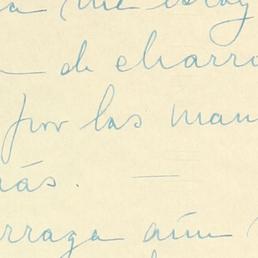 a me estoy
de charro
por las man
rás. —
rraga aún